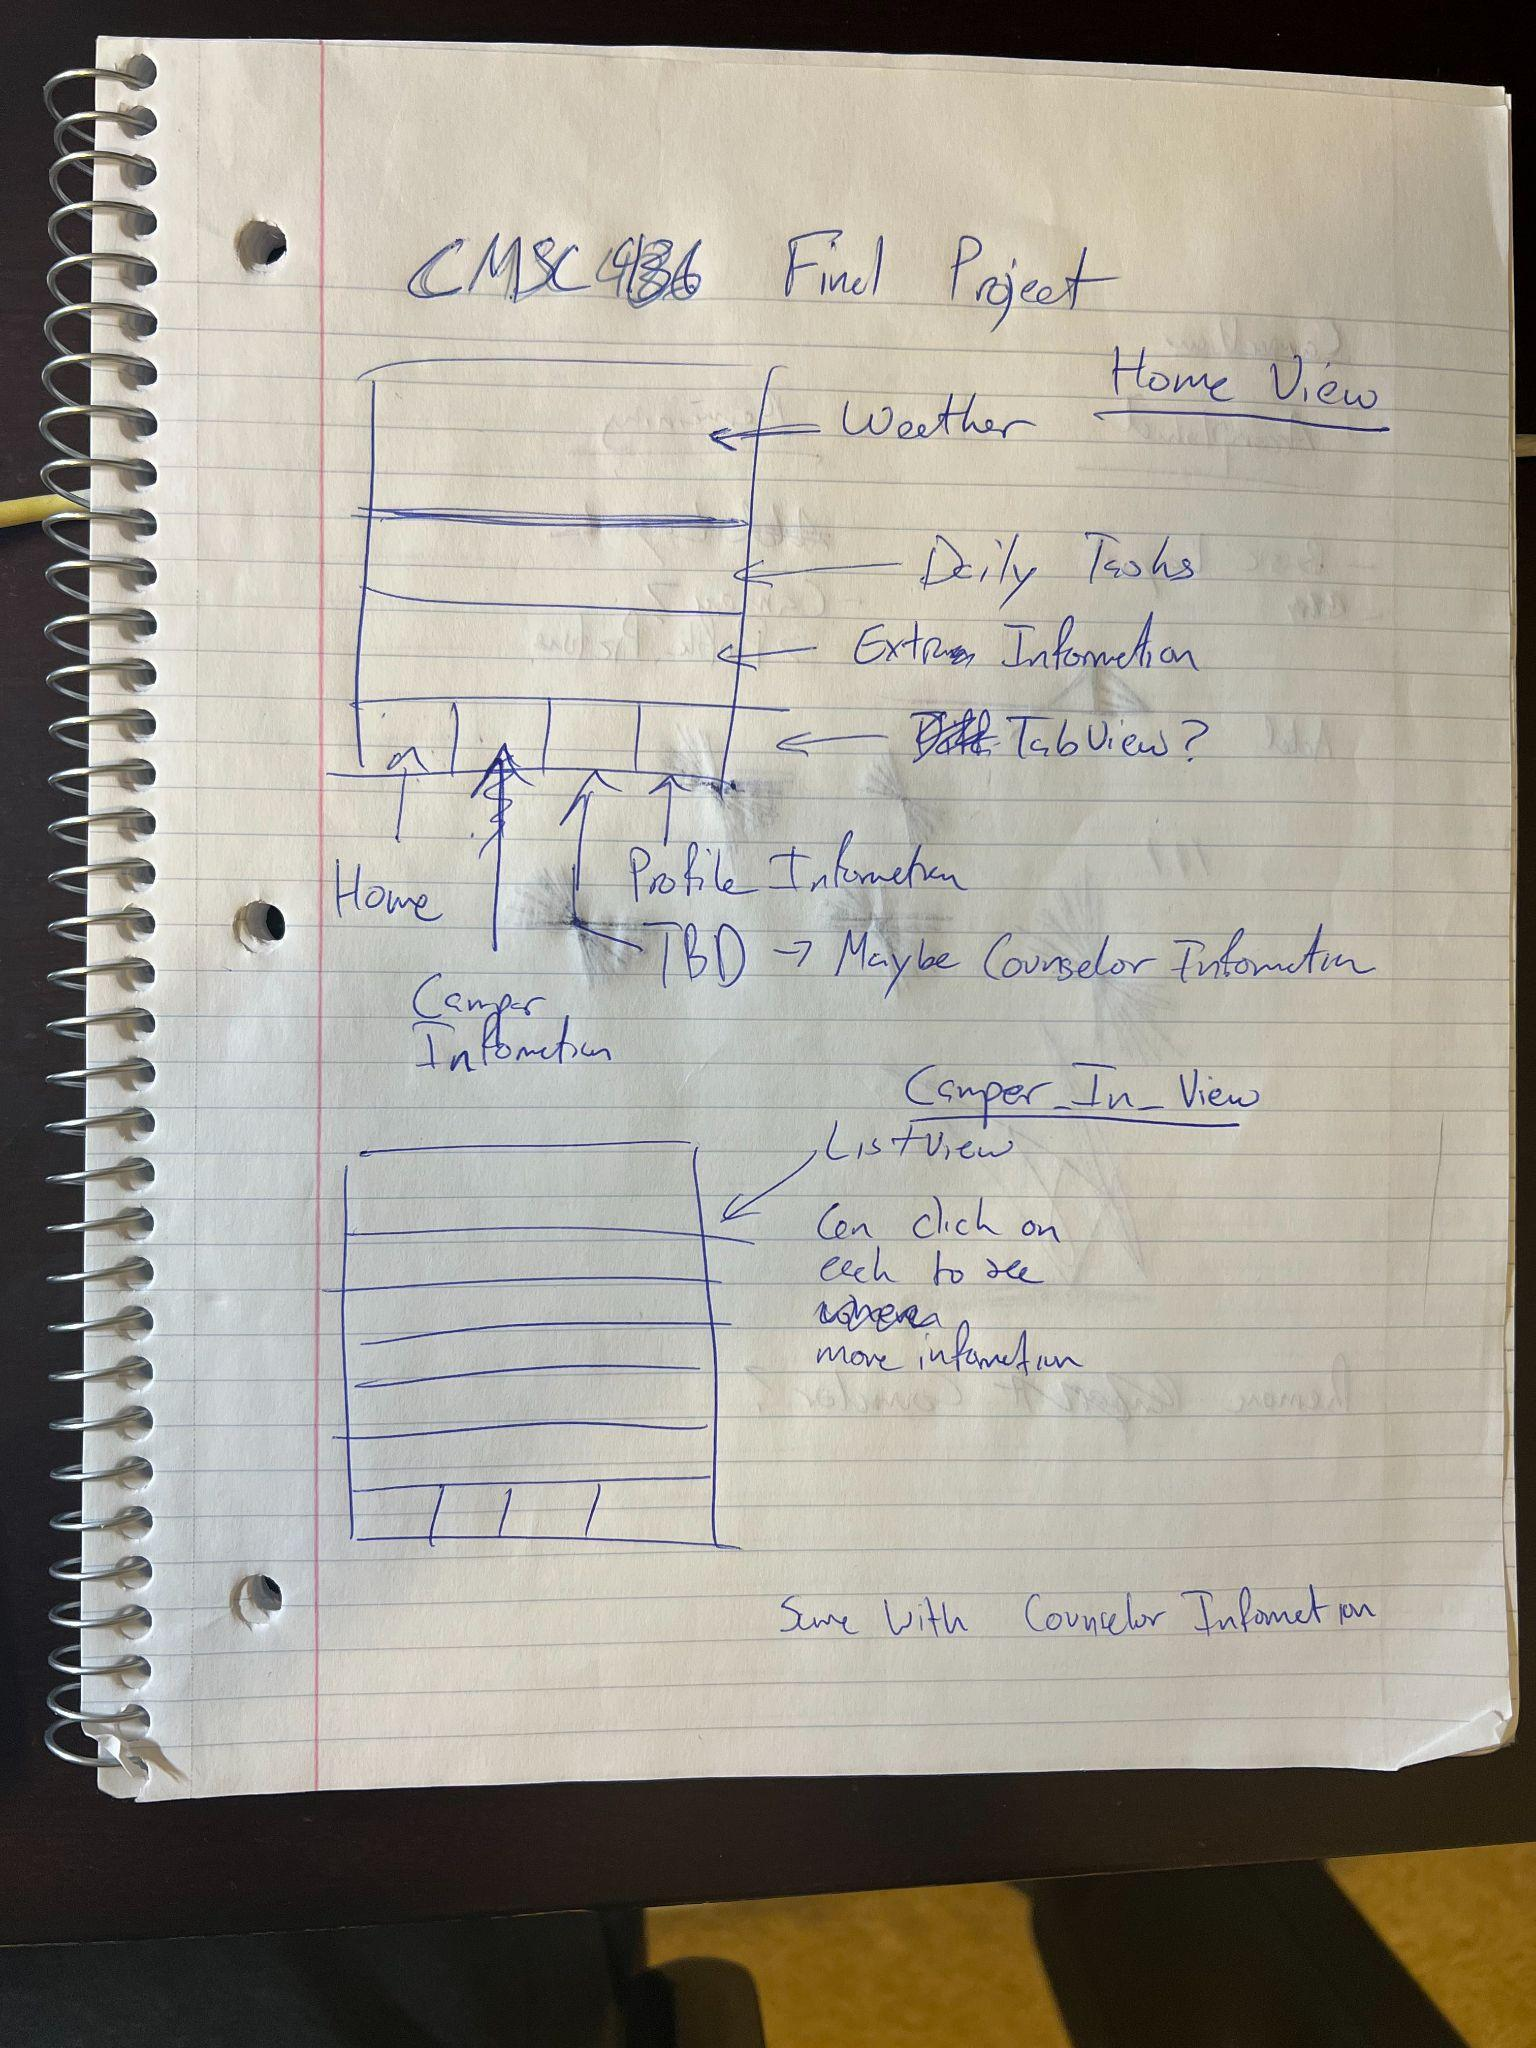 CMSC436 Final Project
Home View
Weather
Daily Tasks
Extra Information
TabView?
Home
Profile Information
TBD → Maybe Counselor Information
Camper
Information
Camper_In_View
ListView
Can click on
each to see
more information
Same with Counselor Information